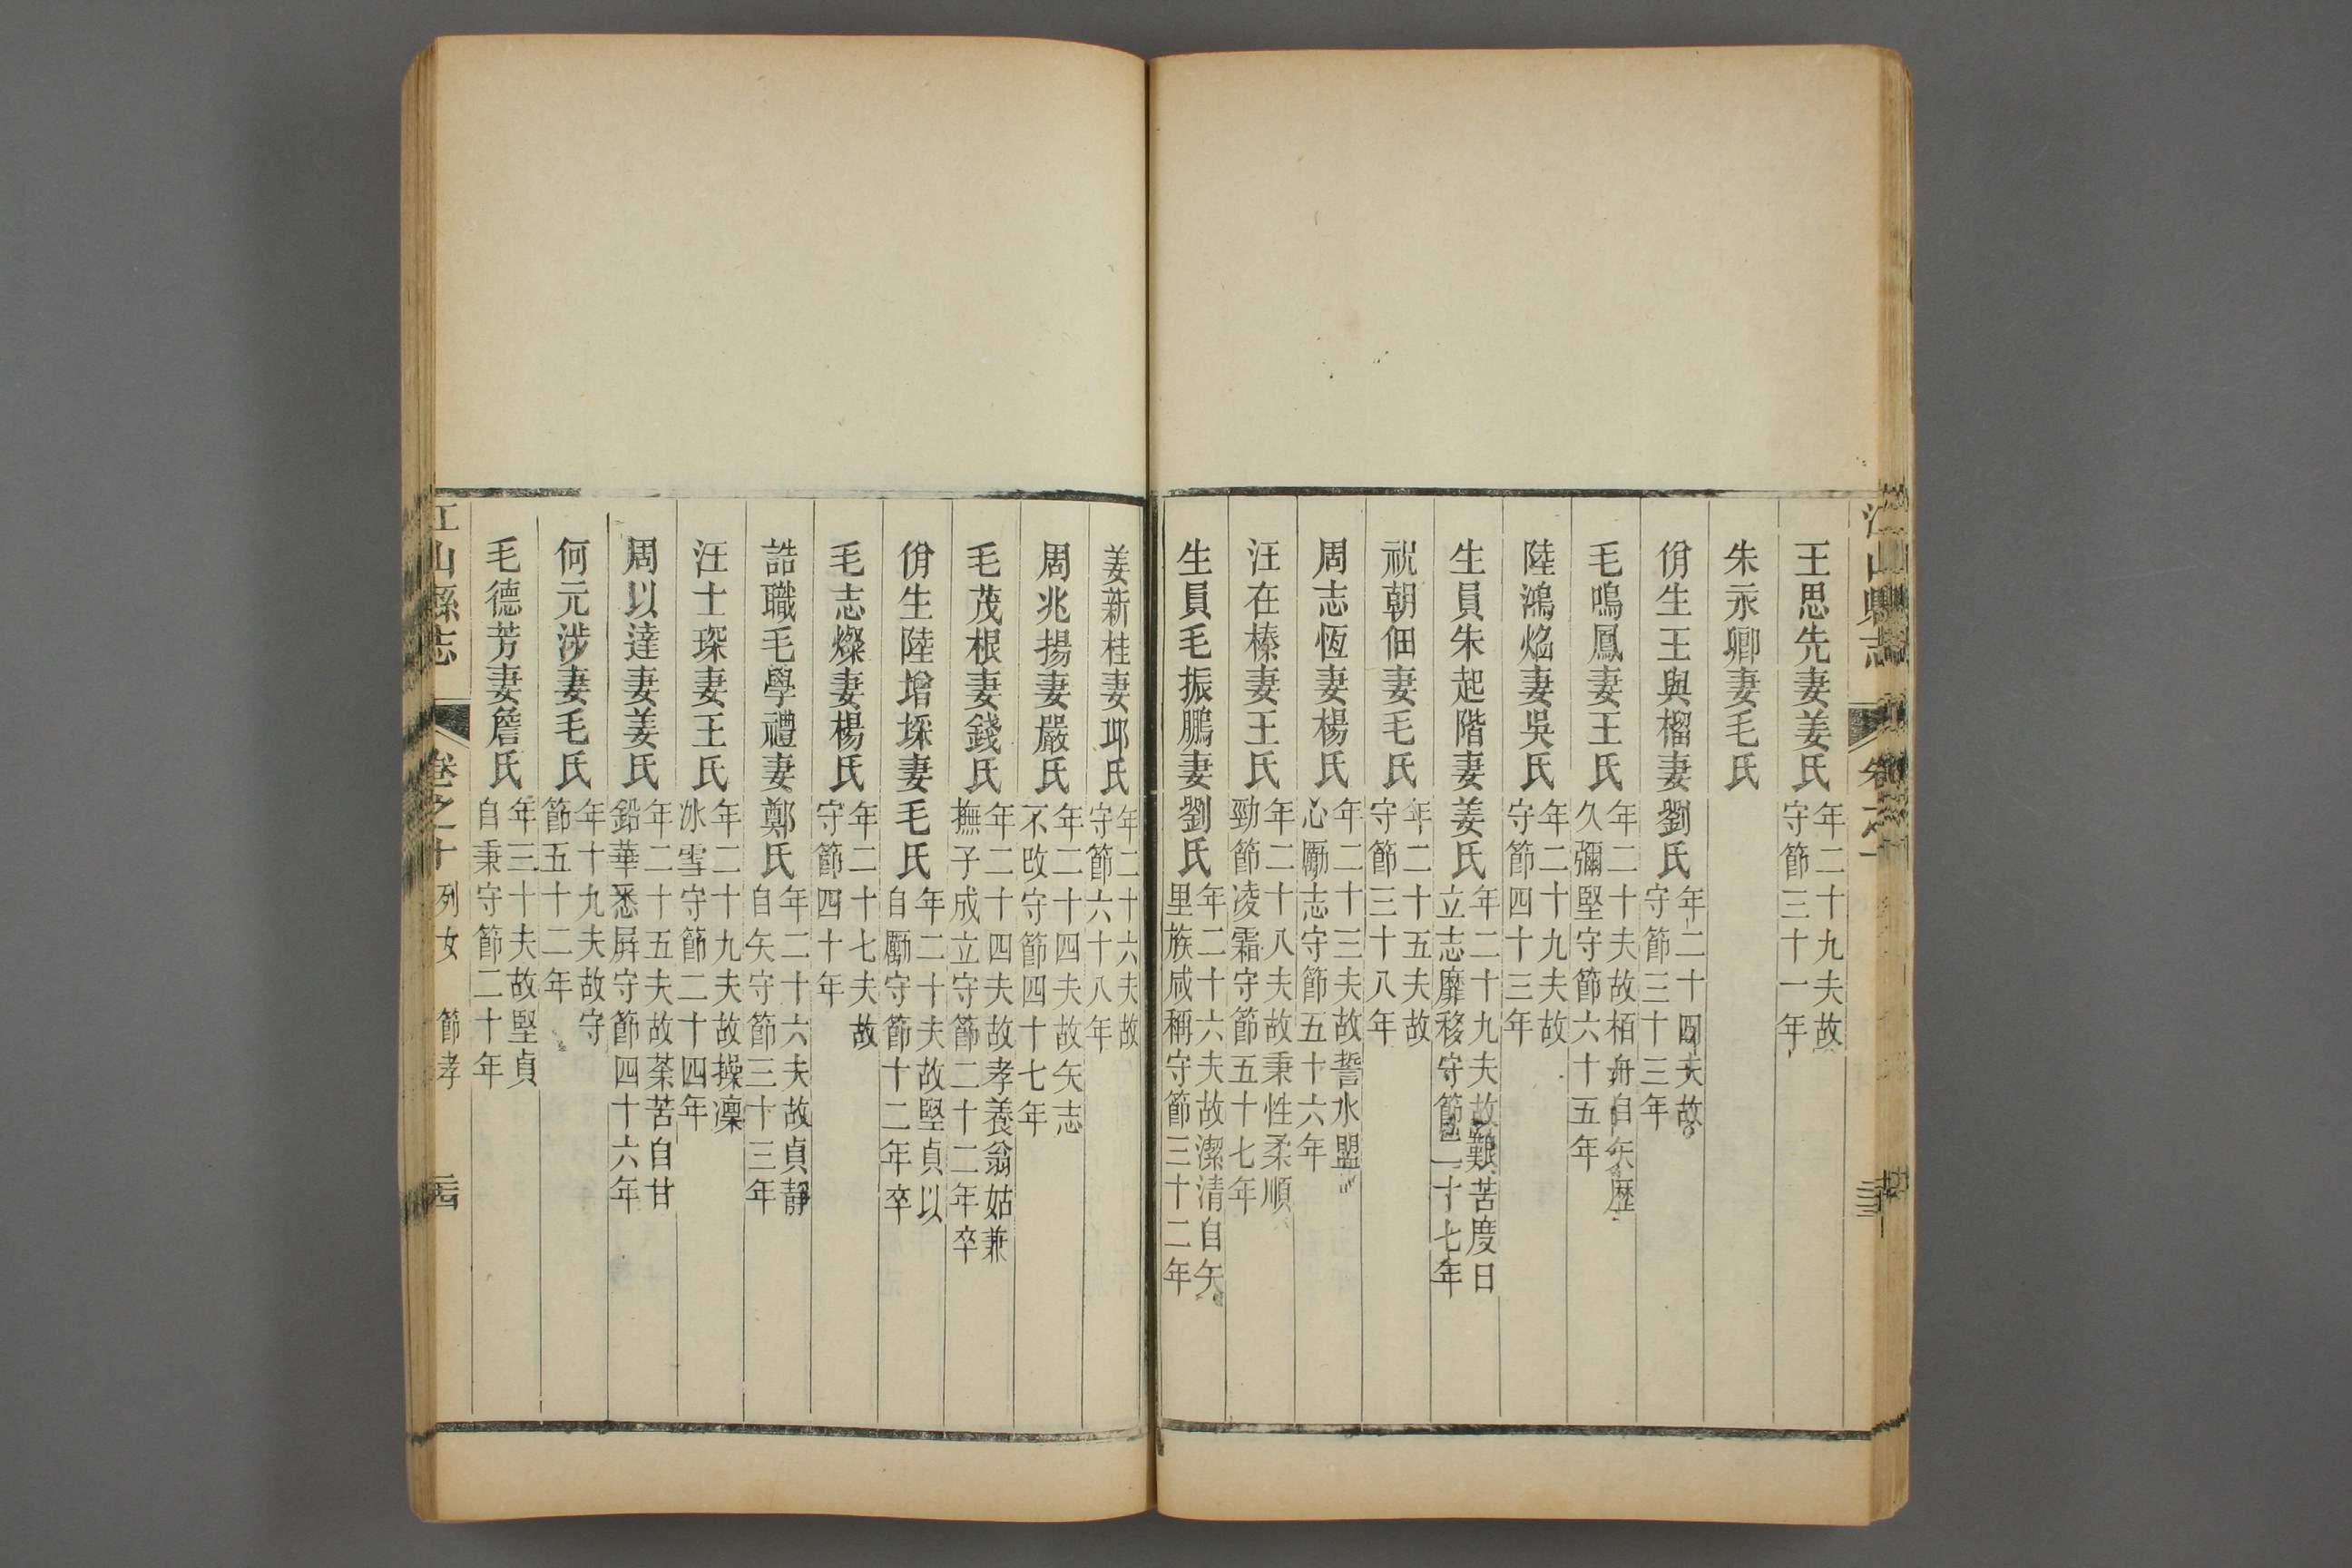 王思先妻姜氏年二十九夫故守節三十一年
朱永卿妻毛氏
佾生王與榴妻劉氏年二十四夫故守節三十三年
毛鳴鳳妻王氏年二十夫故栢舟自矢歷久彌堅守節六十五年
陸鴻焰妻吳氏年二十九夫故守節四十三年
生員朱起階妻姜氏年二十九夫故艱苦度日立志靡移守節二十七年
祝朝佃妻毛氏年二十五夫故守節三十八年
周志恆妻楊氏年二十三夫故誓水盟心勵志守節五十六年
汪在榛妻王氏年二十八夫故秉性柔順勁節凌霜守節五十七年
生員毛振鵬妻劉氏年二十六夫故潔清自矢里族咸稱守節三十二年
姜新桂妻邶氏年二十六夫故守節六十八年
周兆揚妻嚴氏年二十四夫故矢志不改守節四十七年
毛茂根妻錢氏年二十四夫故孝養翁姑兼撫子成立守節二十二年卒
佾生陸增埰妻毛氏年二十夫故堅貞以自勵守節十二年卒
毛志燦妻楊氏年二十七夫故守節四十年
誥職毛學禮妻鄭氏年二十六夫故貞靜自矢守節三十三年
汪士琛妻王氏年二十九夫故操凜冰雪守節二十四年
周以達妻姜氏年二十五夫故荼苦自甘鉛華悉屏守節四十六年
何元涉妻毛氏年十九夫故守節五十二年
毛德芳妻詹氏年三十夫故堅貞自秉守節二十年
江山縣志 卷之十 列女 節孝